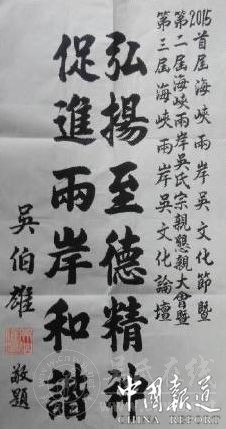 2015首届海峽兩岸吳文化節暨
第二届海峽兩岸吳氏宗親懇親大會暨
第三届海峽兩岸吳文化論壇
弘揚至德精神
促進兩岸和諧
吳伯雄
敬題
中國報道
CHINA REPORT